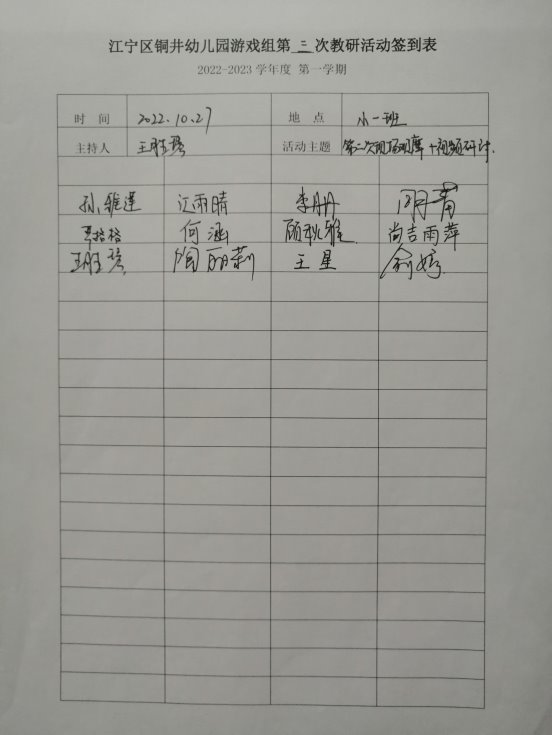 江宁区铜井幼儿园游戏组第 三 次教研活动签到表
2022-2023 学年度 第一学期
时 间 2022.10.27 地 点 小一班
主持人 活动主题 第二次现场观摩+视频研讨.
孙雅莲 江雨晴 李丹丹
何涵 顾秋雅 尚吉雨萍
陶丽莉 王星 俞婷